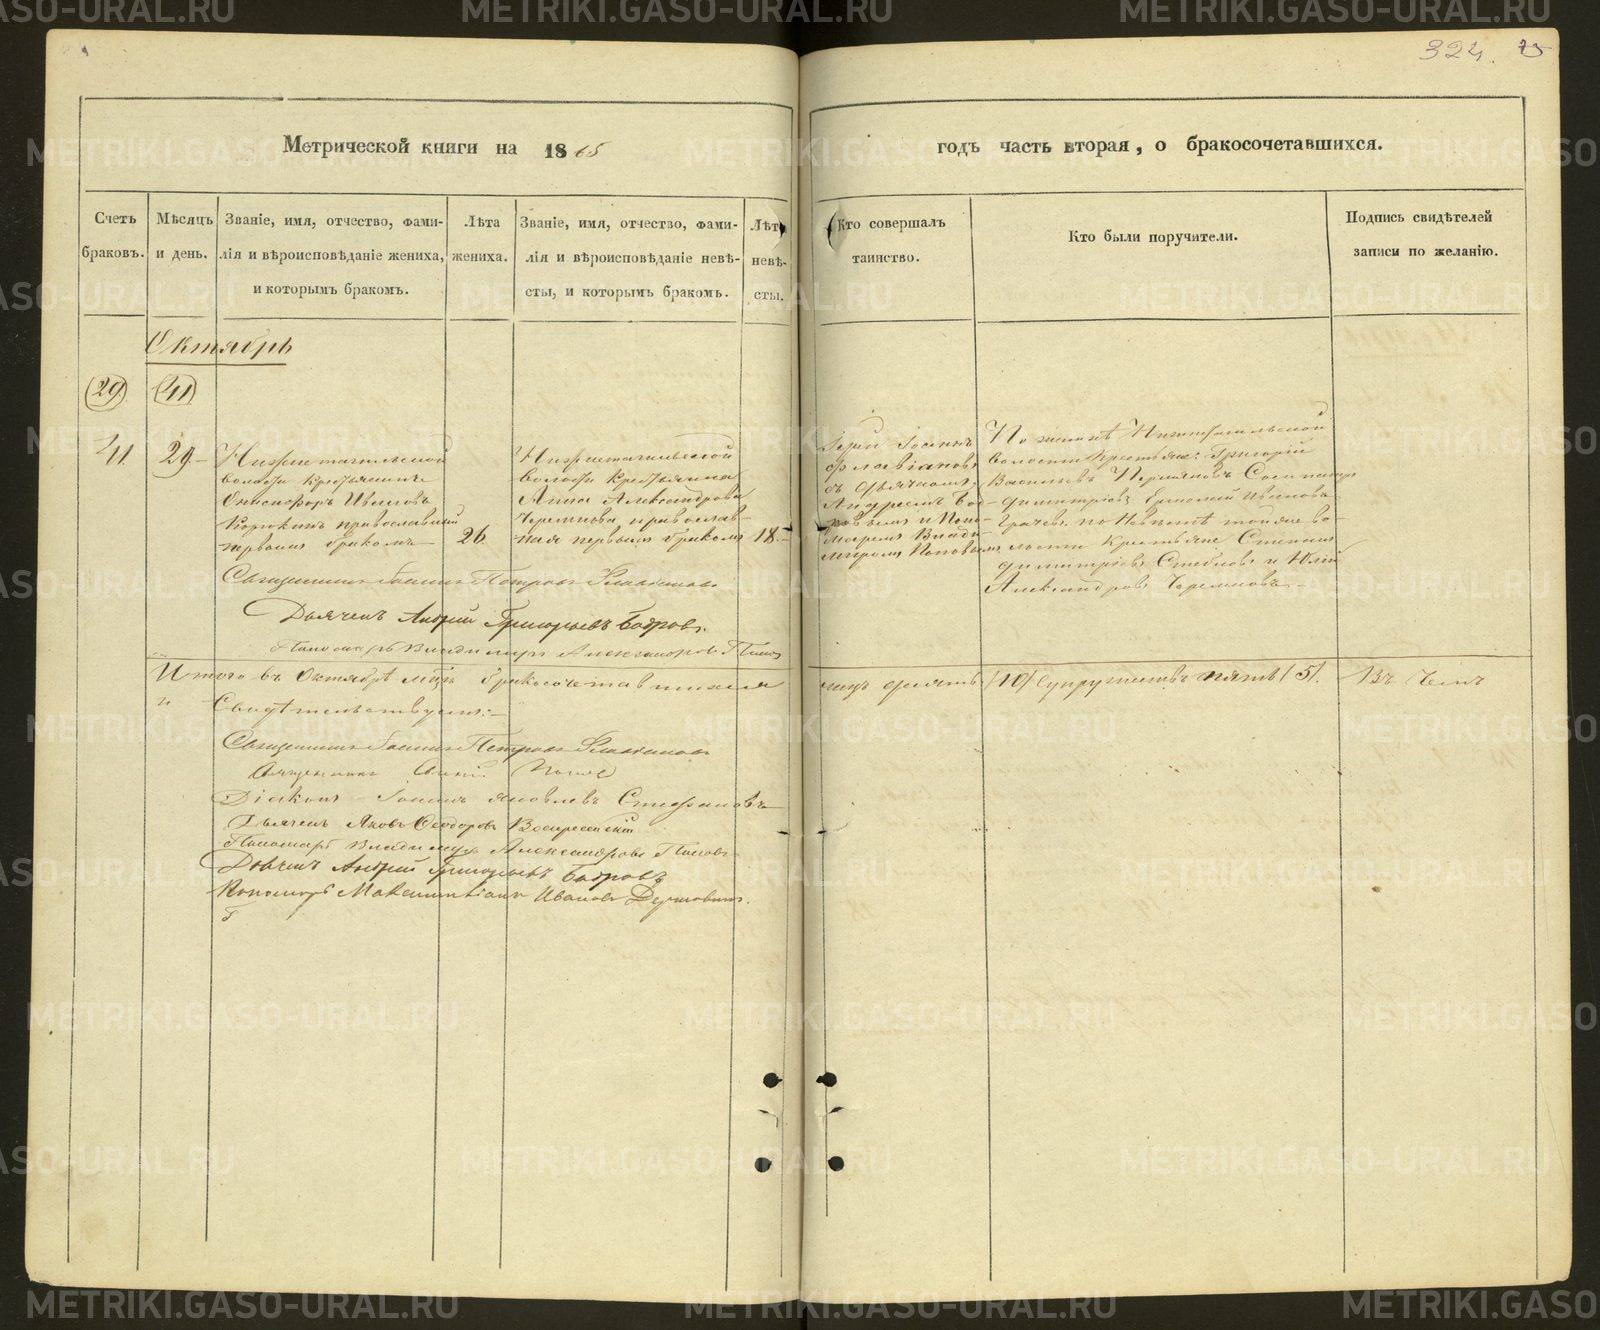 324. 75
Метрической книги на 1865
годъ часть вторая, о бракосочетавшихся.
Счетъ браковъ.
Мѣсяцъ и день.
Званіе, имя, отчество, фами-
лія и вѣроисповѣданіе жениха,
и которымъ бракомъ.
Лѣта
жениха.
Званіе, имя, отчество, фами-
лія и вѣроисповѣданіе невѣ-
сты, и которымъ бракомъ.
Лѣта
невѣ-
сты.
Кто совершалъ
таинство.
Кто были поручители.
Подпись свидѣтелей
записи по желанію.
Октябрь
29 41
41. 29
Нижнетагильской
волости крестьянинъ
Онисифоръ Ивановъ
православный
первымъ бракомъ
26.
Нижнетагильской
волости крестьянка
Анна Александрова
Черемнова, православ-
ная первымъ бракомъ
18.
Іерей Іоаннъ
Флавіановъ
съ дьячкомъ
Андреемъ Боб-
ровымъ и поно-
маремъ Влади-
міромъ Поповымъ
По женихѣ Нижнетагильской
волости крестьяне: Григорій
Васильевъ
Димитріевъ Ивановъ
по невѣстѣ той же во-
лости крестьяне Степанъ
Димитріевъ и
Александровъ Черемновъ.
Священникъ Іоаннъ Петровъ Флавіановъ
Дьячекъ Андрей Григорьевъ Бобровъ.
Пономарь Владиміръ Александровъ Поповъ
Итого въ Октябрѣ мцѣ бракосочетавшихся
лицъ десять (10) супружествъ пять (5). Въ чемъ
и свидѣтельствуемъ:
Священникъ Іоаннъ Петровъ Флавіановъ
Священникъ Поповъ
Діаконъ Іоаннъ Яковлевъ Стефановъ
Дьячекъ Яковъ Ѳеодоровъ Воскресенскій
Пономарь Владиміръ Александровъ Поповъ
Дьячекъ Андрей Григорьевъ Бобровъ
Пономарь Максимиліанъ Ивановъ
METRIKI.GASO-URAL.RU